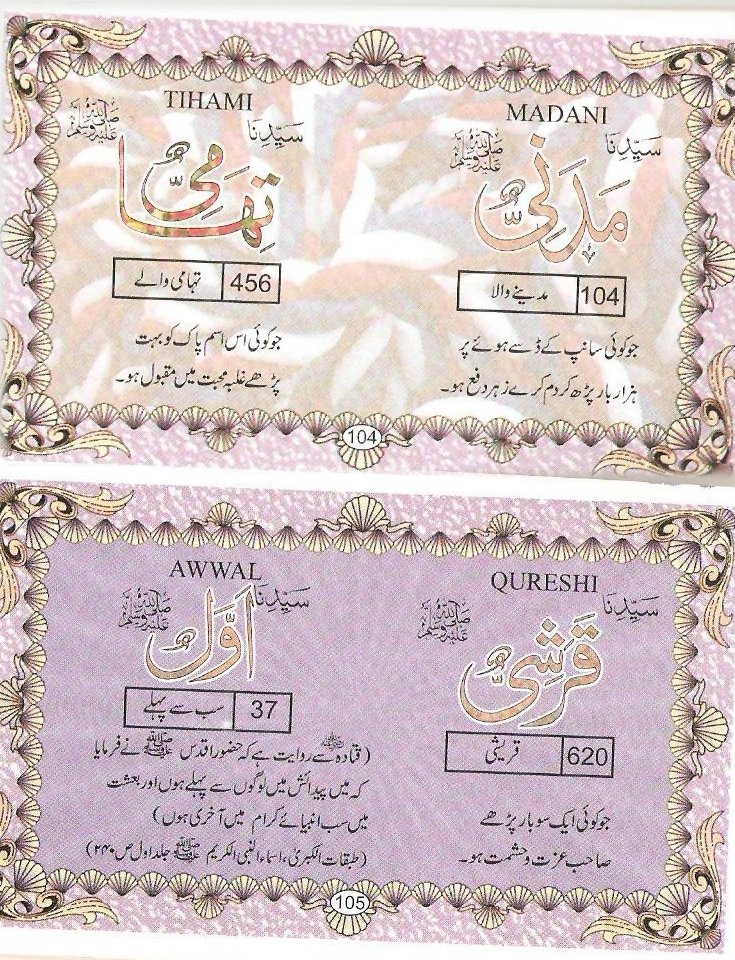 MADANI
سیّدنا مَدَنِیٌّ ﷺ
104 مدینے والا
جوکوئی سانپ کے ڈسے ہوئے پر
ہزار بار پڑھ کر دم کرے زہر دفع ہو۔
TIHAMI
سیّدنا تِهَامِیٌّ ﷺ
456 تہامی والے
جوکوئی اس اسم پاک کو بہت
پڑھے غلبہ محبت میں مقبول ہو۔
104
QURESHI
سیّدنا قَرَشِیٌّ ﷺ
620 قریشی
جوکوئی ایک سو بار پڑھے
صاحب عزت و حشمت ہو۔
AWWAL
سیّدنا اَوَّلٌ ﷺ
37 سب سے پہلے
(قتادہؓ سے روایت ہے کہ حضور اقدس ﷺ نے فرمایا
کہ میں پیدائش میں لوگوں سے پہلے ہوں اور بعشت
میں سب انبیائے کرام میں آخری ہوں)
(طبقات الکبریٰ، اسماء النبی الکریم ﷺ جلد اول ص ۲۴۰)
105